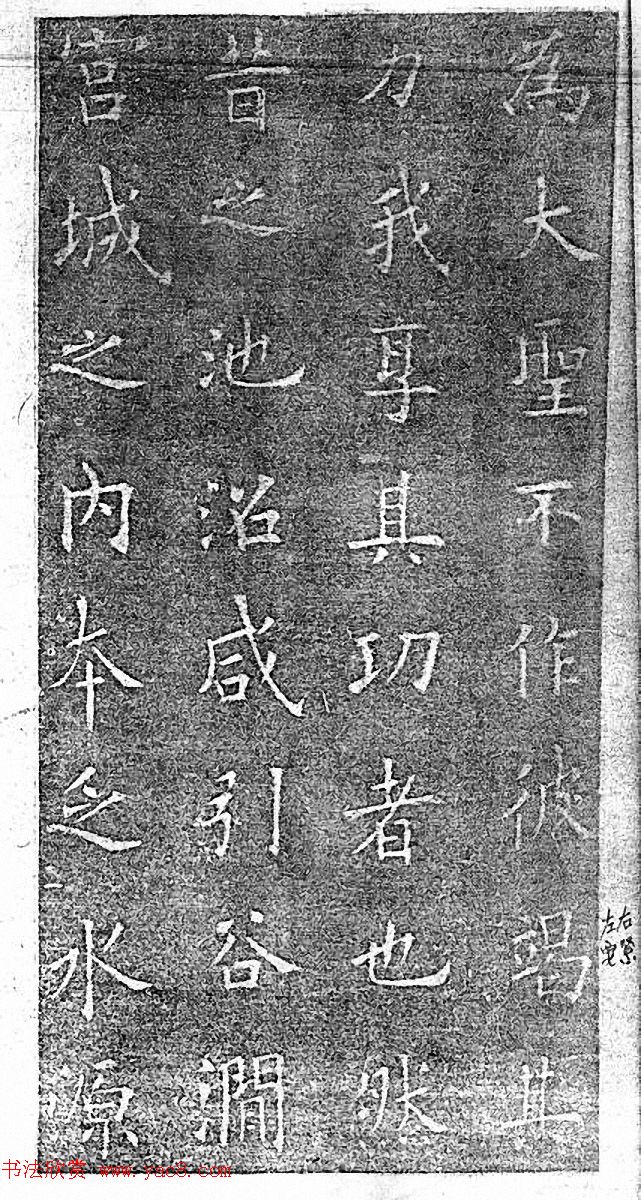 為大聖不作彼竭其
力我享其功者也然
昔之池沼咸引谷澗
宮城之内本乏水源
右緊
左寬
书法欣赏 www.yac8.com